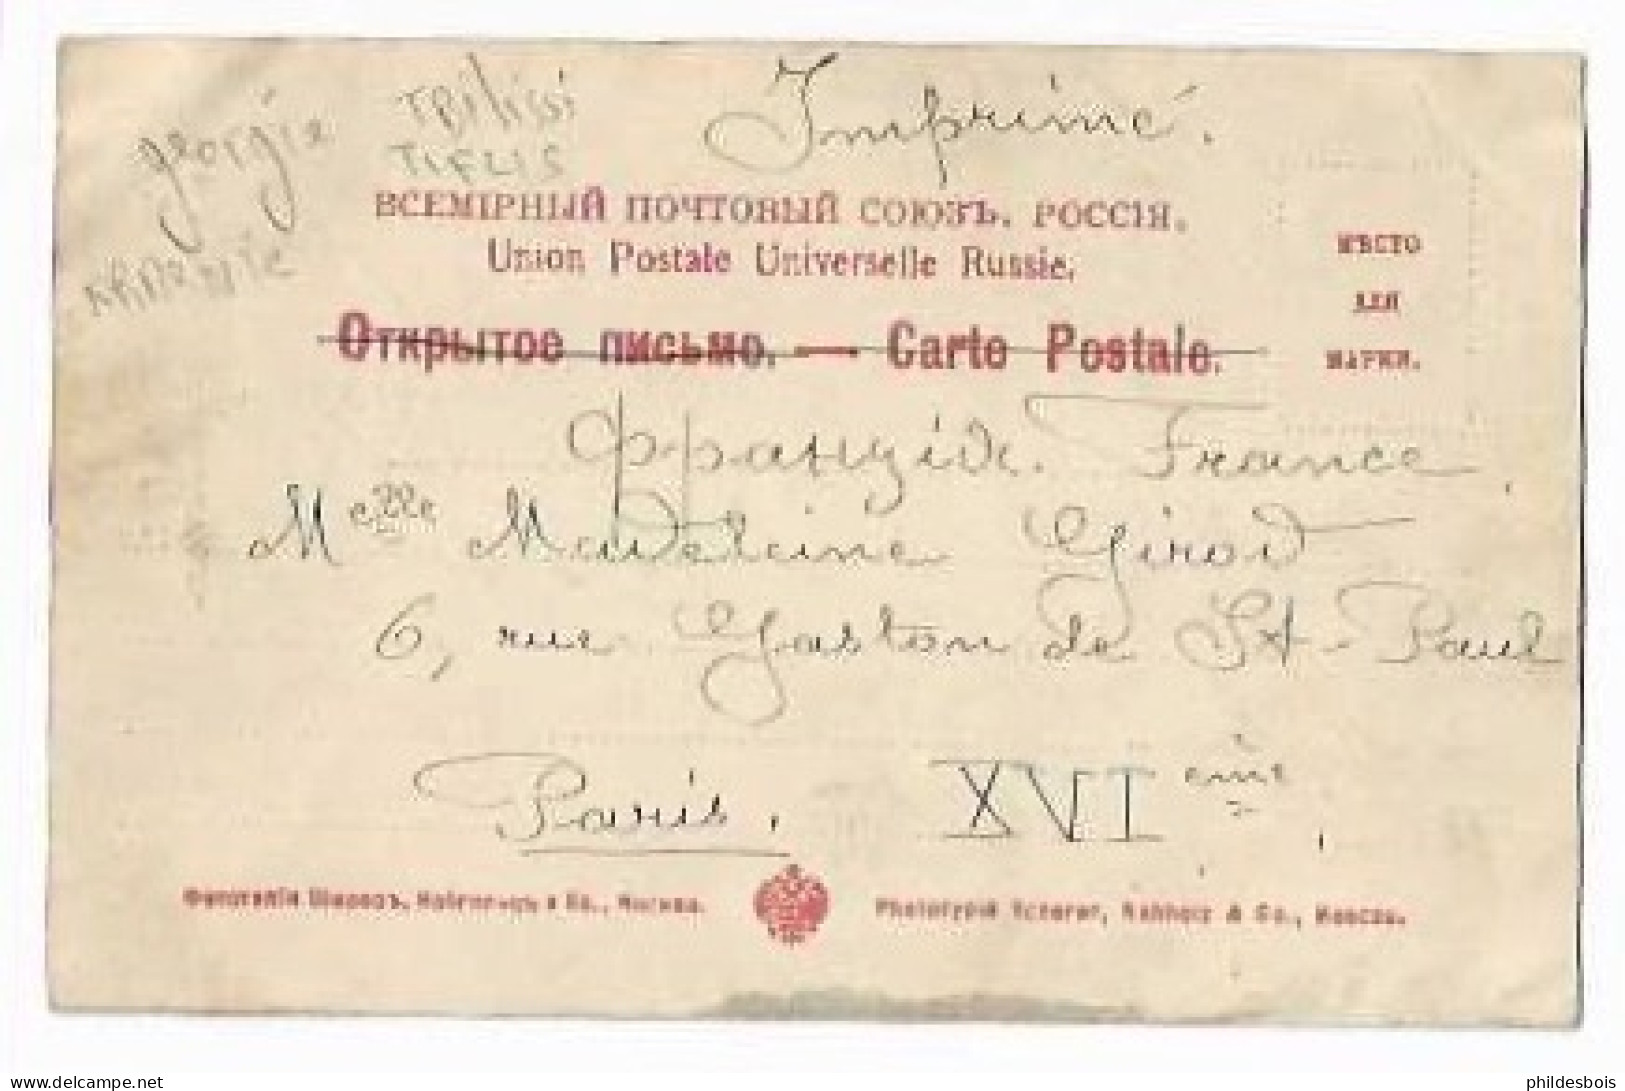 georgie
TBilissi
TIFLIS
ARMENIE
Imprimé.
ВСЕМІРНЫЙ ПОЧТОВЫЙ СОЮЗЪ. РОССІЯ.
Union Postale Universelle Russie.
МѢСТО
ДЛЯ
МАРКИ.
Открытое письмо. — Carte Postale.
Франція. France.
Melle Madeleine Girod
6, rue Gaston de St-Paul
Paris. XVI ème,
Фототипія Шереръ, Набгольцъ и Ко., Москва.
Phototypie Scherer, Nabholz & Co., Moscou.
delcampe.net
phildesbois